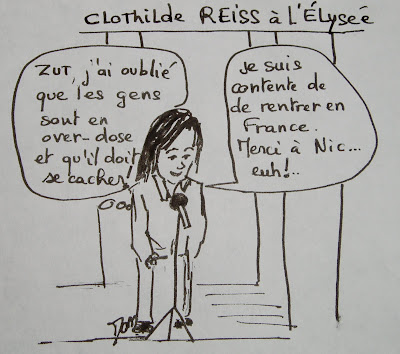 CLOTHILDE REISS à L'ÉLYSÉÉ
ZUT, j'ai oublié
que les gens
sont en
over-dose
et qu'il doit
se cacher!
Je suis
contente de
de rentrer en
France.
Merci à Nic...
euh!..